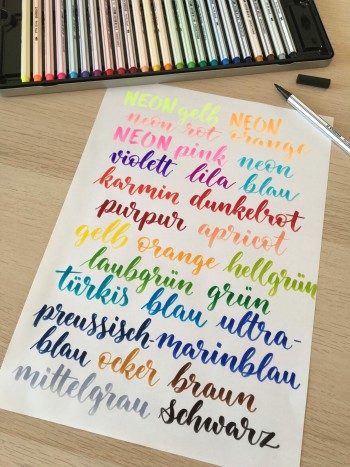 NEON gelb NEON
neon rot orange
NEON pink neon
violett lila blau
karmin dunkelrot
purpur apricot
gelb orange hellgrün
laubgrün grün
türkis blau ultra-
preussisch-marinblau
blau ocker braun
mittelgrau schwarz